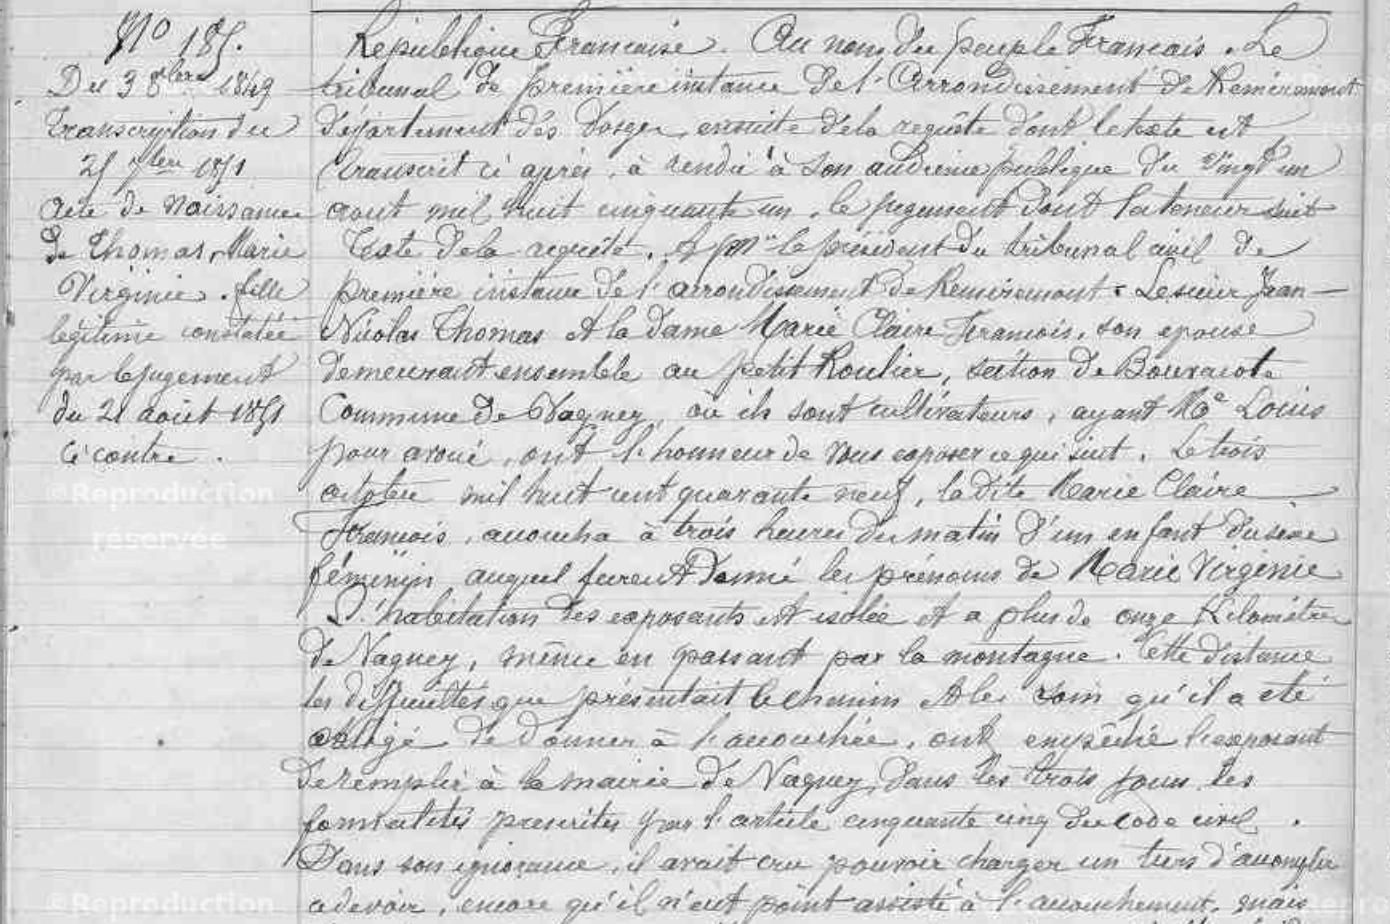 No 185.
Du 3 8bre 1849
Transcription du
25 7bre 1851
Acte de Naissance
de Thomas, Marie
Virginie. fille
légitime constatée
par le jugement
du 21 août 1851
Ci contre.
République Française. Au nom du peuple Français. Le
tribunal de première instance de l'Arrondissement de Remiremont
département des Vosges, ensuite dela requête dont le texte est
transcrit ci après, à rendu à son audience publique du vingt un
aout mil huit cinquante un, le jugement dont la teneur suit
Texte dela requête. A Mr le président du tribunal civil de
première instance de l'arrondissement de Remiremont. Le sieur Jean
Nicolas Thomas et la dame Marie Claire Francois, son epouse
demeurant ensemble au petit Roulier, section de
Commune de Vagney, où ils sont cultivateurs, ayant Me Louis
pour avoué, ont l'honneur de vous exposer ce qui suit. Le trois
octobre mil huit cent quarante neuf, la dite Marie Claire
Francois, accoucha à trois heures du matin d'un enfant du sexe
féminin auquel furent donné les prénoms de Marie Virginie
L'habitation des exposants est isolée et a plus de onze Kilomètres
de Vagney, même en passant par la montagne. Cette distance
les difficultés que présentait le chemin et les soin qu'il a été
obligé de donner à l'accouchée, ont empêché l'exposant
de remplir à la mairie de Vagney, dans les trois jours, les
formalités prescrites par l'article cinquante cinq du code civil.
Dans son ignorance, il avait cru pouvoir charger un tiers d'accomplir
ce devoir, encore qu'il n'eut point assisté à l'accouchement, mais
©Reproduction
réservée
©Reproduction